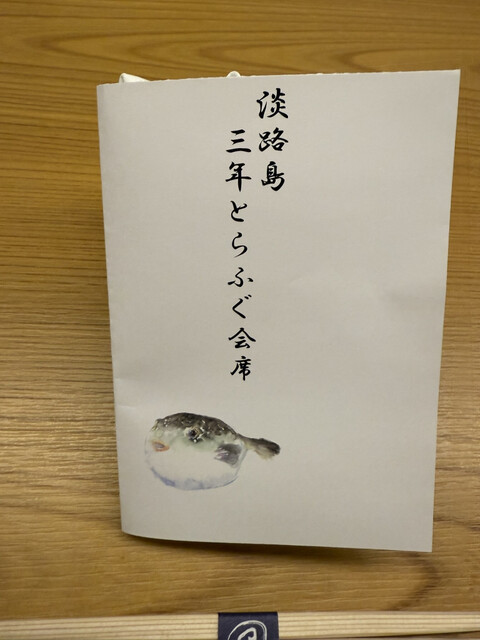 淡路島
三年とらふぐ会席